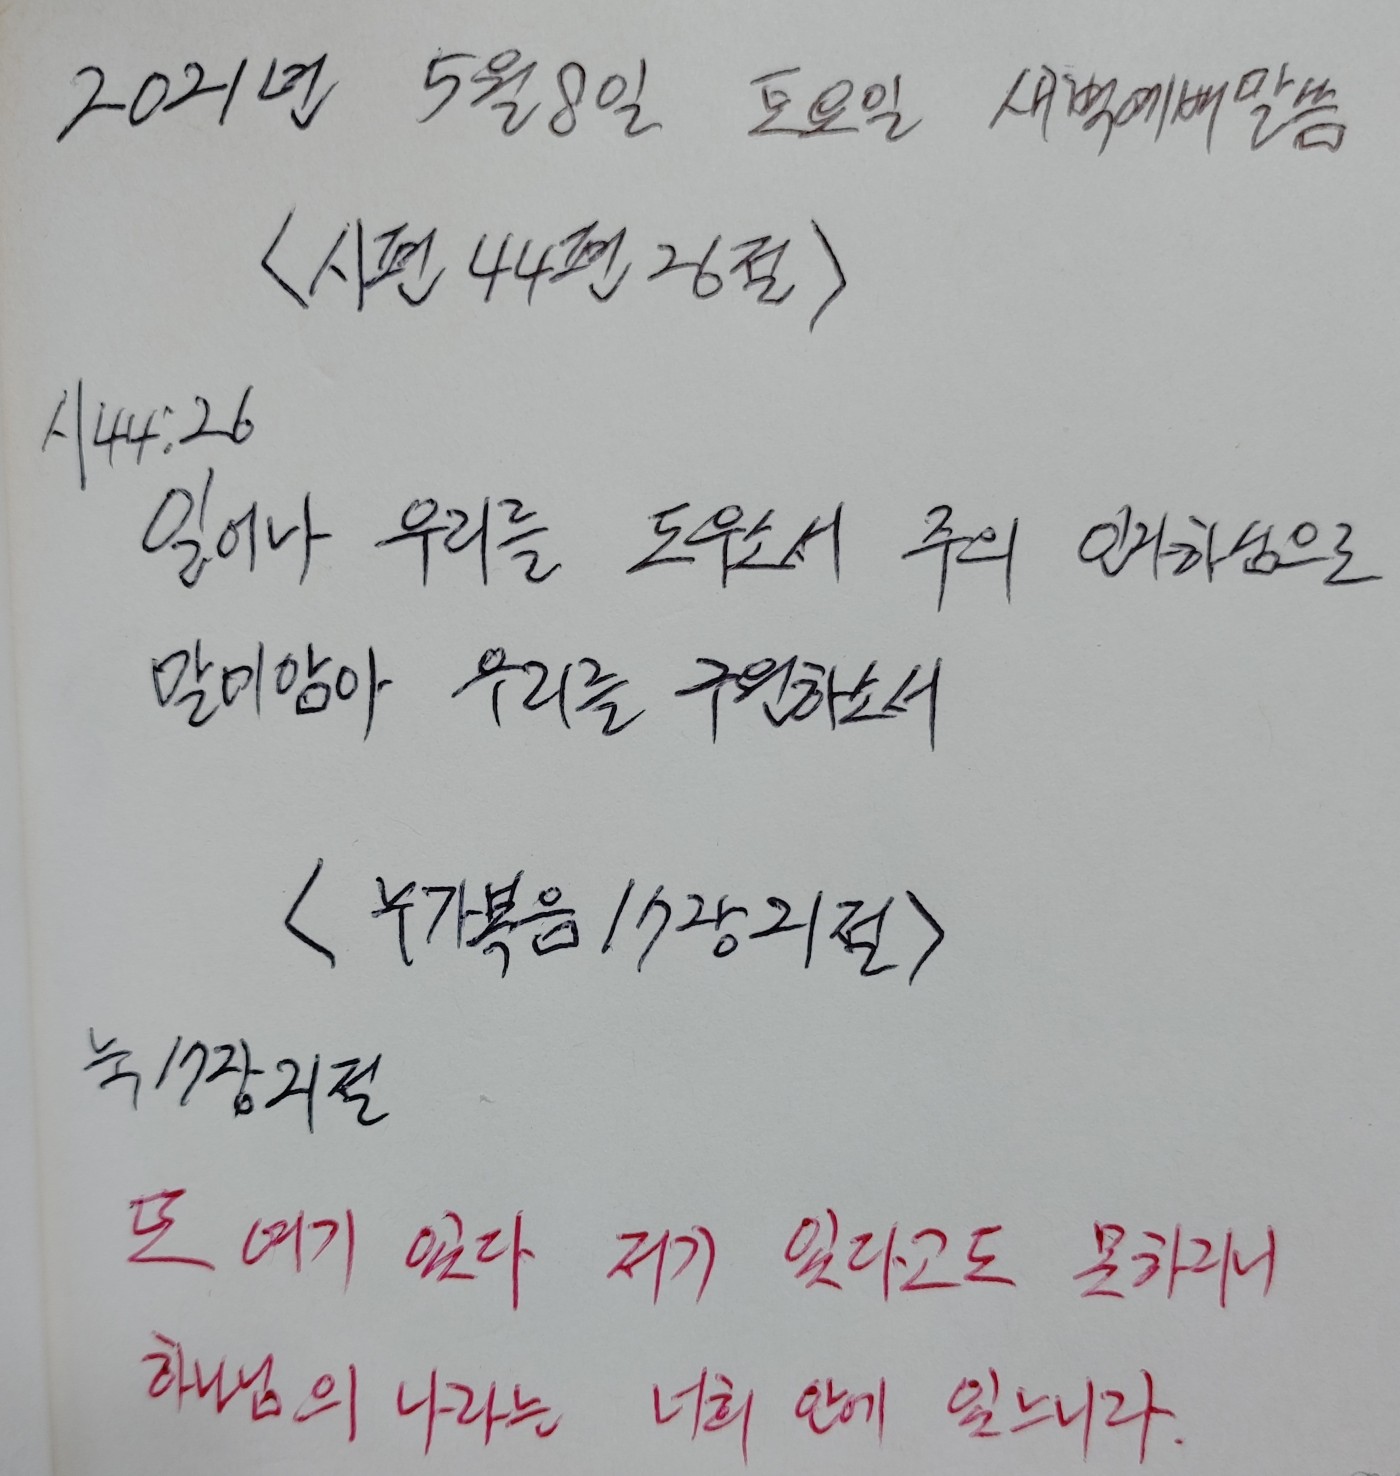 2021년 5월8일 토요일 새벽예배말씀
<시편 44편 26절>
시44:26
일어나 우리를 도우소서 주의 인자하심으로
말미암아 우리를 구원하소서
<누가복음 17장 21절>
눅 17장 21절
또 여기 있다 저기 있다고도 못하리니
하나님의 나라는 너희 안에 있느니라.